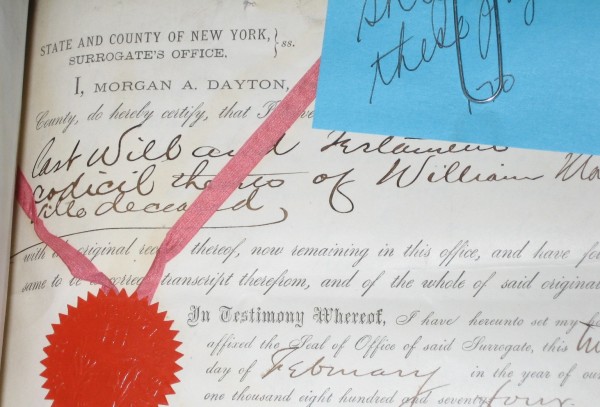 STATE AND COUNTY OF NEW YORK, } ss.
SURROGATE'S OFFICE.
these
I, MORGAN A. DAYTON,
County, do hereby certify, that I
Last Will and Testament
codicil thereto of William
ville deceased
with original thereof, now remaining in this office, and have
same to be a correct transcript therefrom, and of the whole of said original
In Testimony Whereof, I have hereunto set my
affixed the Seal of Office of said Surrogate, this
day of February in the year of our
one thousand eight hundred and seventy four